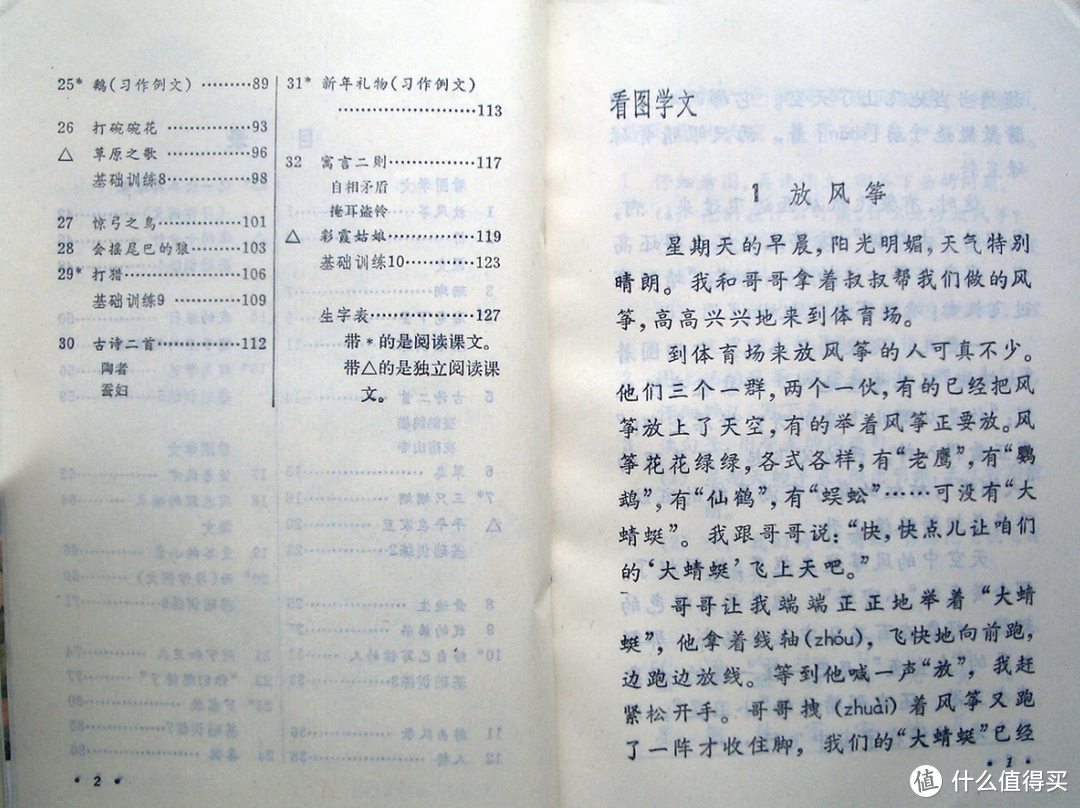 25* 鹅(习作例文)………89
26 打碗碗花…………93
△ 草原之歌…………96
基础训练8…………98
27 惊弓之鸟…………101
28 会摇尾巴的狼………103
29* 打猎………………106
基础训练9…………109
30 古诗二首…………112
陶者
蚕妇
· 2 ·
31* 新年礼物(习作例文)
………………………113
32 寓言二则……………117
自相矛盾
掩耳盗铃
△ 彩霞姑娘……………119
基础训练10…………123
生字表………………127
带*的是阅读课文。
带△的是独立阅读课
文。
看图学文
1 放风筝
星期天的早晨，阳光明媚，天气特别
晴朗。我和哥哥拿着叔叔帮我们做的风
筝，高高兴兴地来到体育场。
到体育场来放风筝的人可真不少。
他们三个一群，两个一伙，有的已经把风
筝放上了天空，有的举着风筝正要放。风
筝花花绿绿，各式各样，有“老鹰”，有“鹦
鹉”，有“仙鹤”，有“蜈蚣”……可没有“大
蜻蜓”。我跟哥哥说：“快，快点儿让咱们
的‘大蜻蜓’飞上天吧。”
哥哥让我端端正正地举着“大蜻
蜓”，他拿着线轴(zhóu)，飞快地向前跑，
边跑边放线。等到他喊一声“放”，我赶
紧松开手。哥哥拽(zhuài)着风筝又跑
了一阵才收住脚，我们的“大蜻蜓”已经
· 1 ·
值 什么值得买